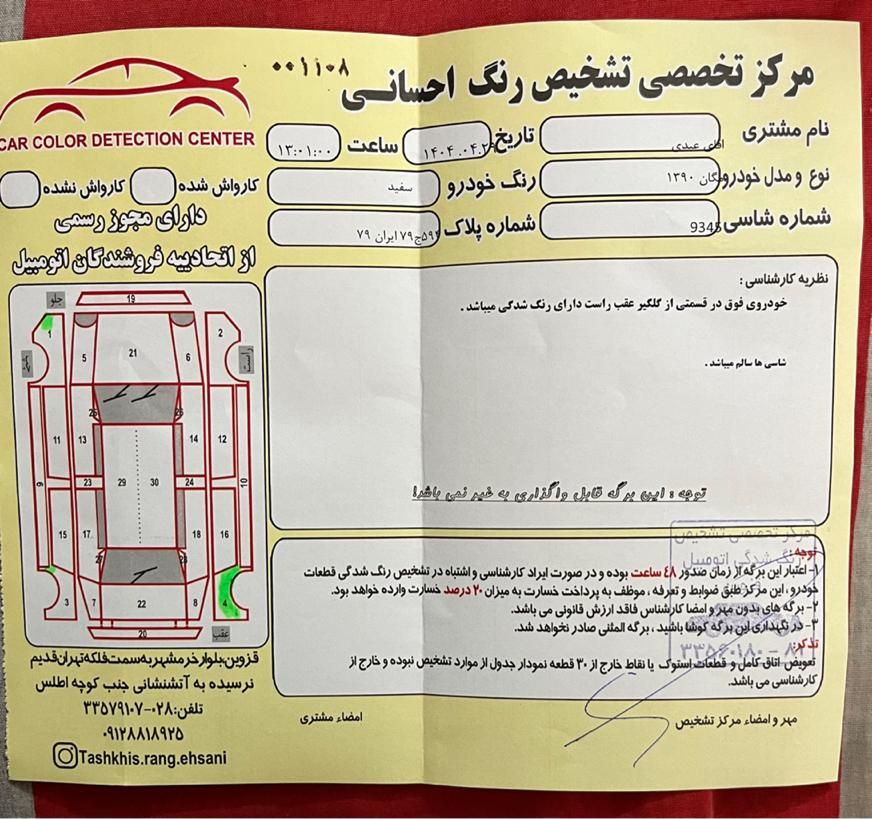 مرکز تخصصی تشخیص رنگ احسانی
۰۰۱۱۰۸
CAR COLOR DETECTION CENTER
نام مشتری
اقای عبدی
تاریخ
ساعت ۱۳:۰۱:۰۰
نوع و مدل خودرو
۱۳۹۰
رنگ خودرو سفید
کارواش شده
کارواش نشده
شماره شاسی
شماره پلاک
ایران ۷۹
دارای مجوز رسمی
از اتحادییه فروشندگان اتومبیل
نظریه کارشناسی :
خودروی فوق در قسمتی از گلگیر عقب راست دارای رنگ شدگی میباشد .
شاسی ها سالم میباشد .
توجه : این برگه قابل واگذاری به غیر نمی باشد!
جلو
19
1
2
5
21
6
راست
25
26
11
13
14
12
9
23
29
30
24
10
15
17
18
16
3
7
22
8
4
20
عقب
توجه:
۱- اعتبار این برگه از زمان صدور ۴۸ ساعت بوده و در صورت ایراد کارشناسی و اشتباه در تشخیص رنگ شدگی قطعات
خودرو، این مرکز طبق ضوابط و تعرفه ، موظف به پرداخت خسارت به میزان ۲۰ درصد خسارت وارده خواهد بود.
۲- برگه های بدون مهر و امضا کارشناس فاقد ارزش قانونی می باشد.
۳- در نگهداری این برگه کوشا باشید ، برگه المثنی صادر نخواهد شد.
تذکر:
تعویض اتاق کامل و قطعات استوک یا نقاط خارج از ۳۰ قطعه نمودار جدول از موارد تشخیص نبوده و خارج از
کارشناسی می باشد.
مرکز تخصصی تشخیص
رنگ شدگی اتومبیل
مهر و امضاء مرکز تشخیص
امضاء مشتری
قزوین بلوار خرمشهر به سمت فلکه تهران قدیم
نرسیده به آتشنشانی جنب کوچه اطلس
تلفن: ۰۲۸-۳۳۵۷۹۱۰۷
۰۹۱۲۸۸۱۸۹۲۵
Tashkhis.rang.ehsani